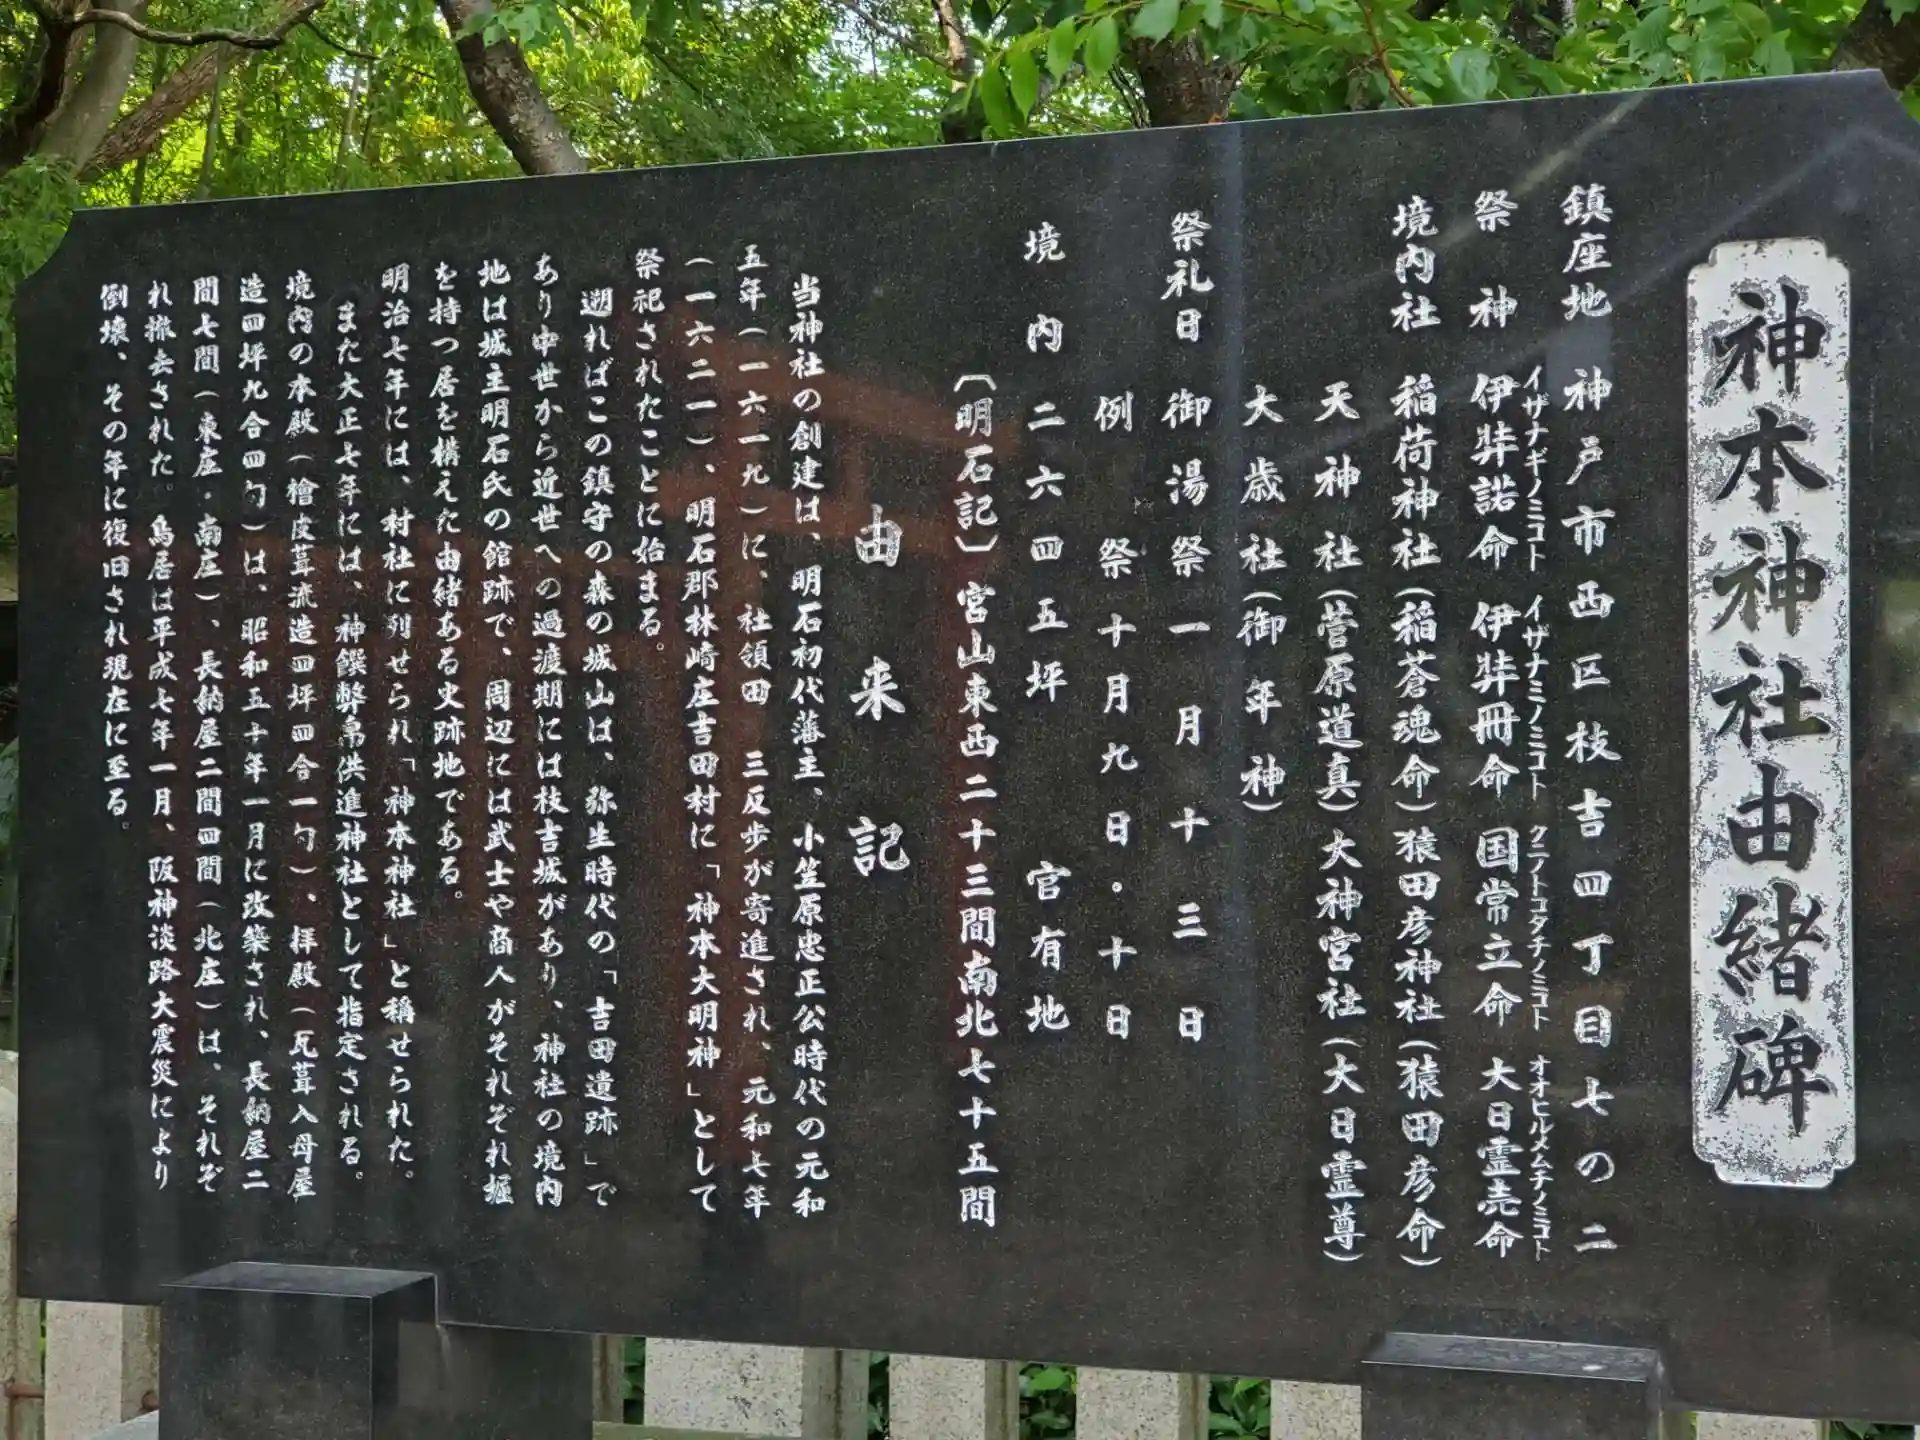 神本神社由緒碑
鎮座地 神戸市西区枝吉四丁目七の二
祭神 伊弉諾命 伊弉冊命 国常立命 大日霊売命
イザナギノミコト イザナミノミコト クニノトコタチノミコト オオヒルメムチノミコト
境内社 稲荷神社(稲蒼魂命)猿田彦神社(猿田彦命)
天神社(菅原道真)大神宮社(大日霊尊)
大歳社(御年神)
祭礼日 御湯祭一月十三日
例祭十月九日・十日
境内二六四五坪 官有地
〔明石記〕宮山東西二十三間南北七十五間
由来記
当神社の創建は、明石初代藩主、小笠原忠正公時代の元和
五年(一六一九)に、社領田 三反歩が寄進され、元和七年
(一六二一)、明石郡林崎庄吉田村に「神本大明神」として
祭祀されたことに始まる。
遡ればこの鎮守の森の城山は、弥生時代の「吉田遺跡」で
あり中世から近世への過渡期には枝吉城があり、神社の境内
地は城主明石氏の館跡で、周辺には武士や商人がそれぞれ堀
を持つ居を構えた由緒ある史跡地である。
明治七年には、村社に列せられ「神本神社」と称せられた。
また大正七年には、神饌弊帛供進神社として指定される。
境内の本殿(檜皮葺流造四坪四合一勺)、拝殿(瓦葺入母屋
造四坪九合四勺)は、昭和五十年一月に改築され、長納屋二
間七間(東庄・南庄)、長納屋二間四間(北庄)は、それぞ
れ撤去された。鳥居は平成七年一月、阪神淡路大震災により
倒壊、その年に復旧され現在に至る。